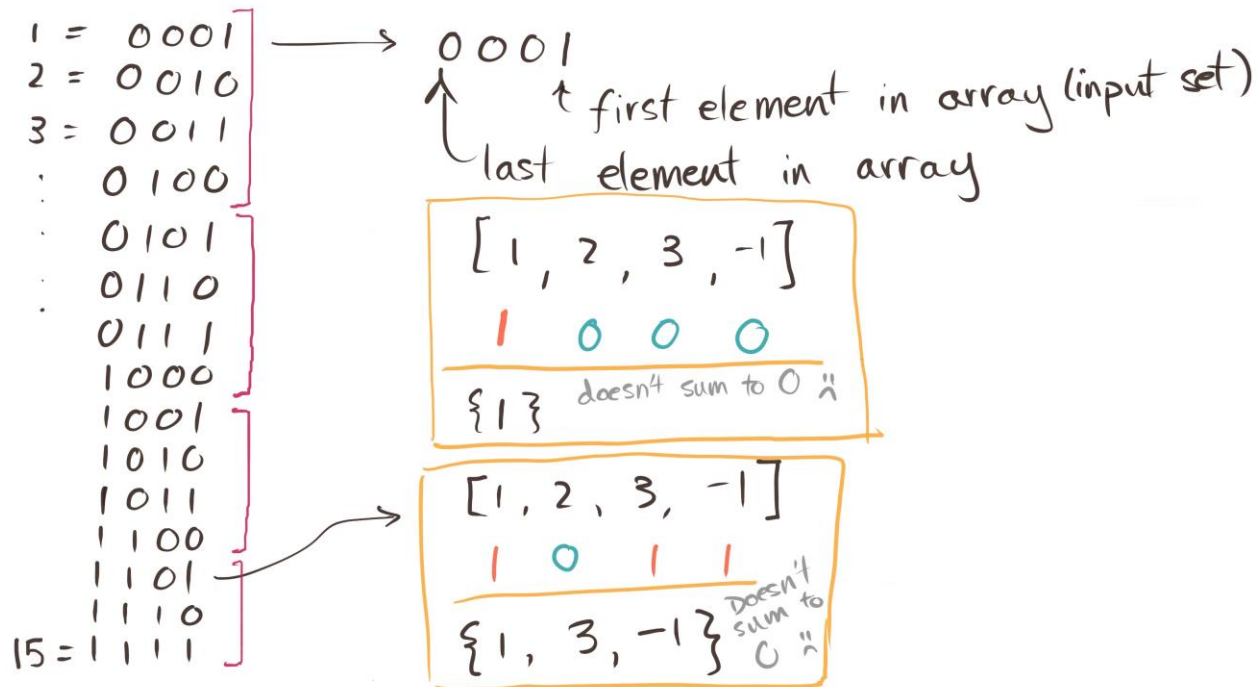 1 = 0001
2 = 0010
3 = 0011
. 0100
. 0101
. 0110
. 0111
1000
1001
1010
1011
1100
1101
1110
15 = 1111
0001
first element in array (input set)
last element in array
[1, 2, 3, -1]
1 0 0 0
{1} doesn't sum to 0 :(
[1, 2, 3, -1]
1 0 1 1
{1, 3, -1}
Doesn't
sum to
0 :(